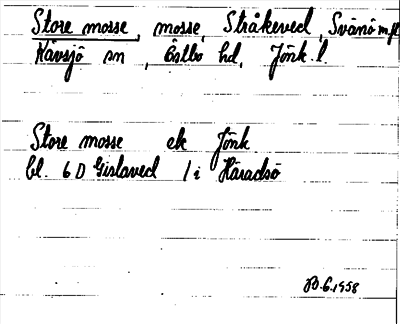 Store mosse, mosse, Stråkeved, Svänö m.fl.
Kävsjö sn, Östbo hd, Jönk. l.
Store mosse ek Jönk
bl. 6 D Gislaved 1 i Häradsö
B. 6.1958